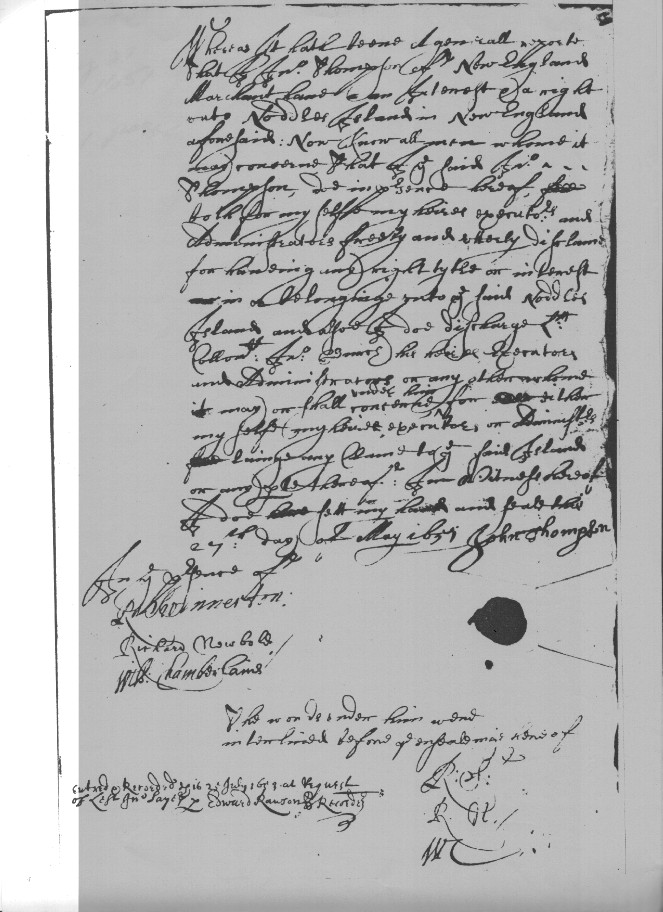 Whereas It hath beene A generall reporte
that I Jno. Thompson of New England
Marchant have an Interest & a right
unto Noddles Island in New England
aforesaid: Now Know all men whome it
may concerne that I ye said Jno.
Thompson, doe in presence hereof
both for my selfe my heires executors and
Administrators freely and utterly disclame
for haveing any right tytle or interest
in or belonginge unto ye said Noddles
Island and alsoe I doe discharge
his heires Executors
and Administrators or any other whome
under him
it may or shall concerne for either
my selfe my heires executors or Administrs
any Clame to ye said Island
or any pte thereof: In Witness hereof
I doe sett my hand and seale this
27th day of May 1651 John Thompson
In ye presence of
Richard Newbold
Will: Chamberlaine
The words under him were
interlined before ye ensealeing hereof
R:
R:
W C
Entred & Recorded July at Request
of Left Jno Sayes Edward Rawson Recorder